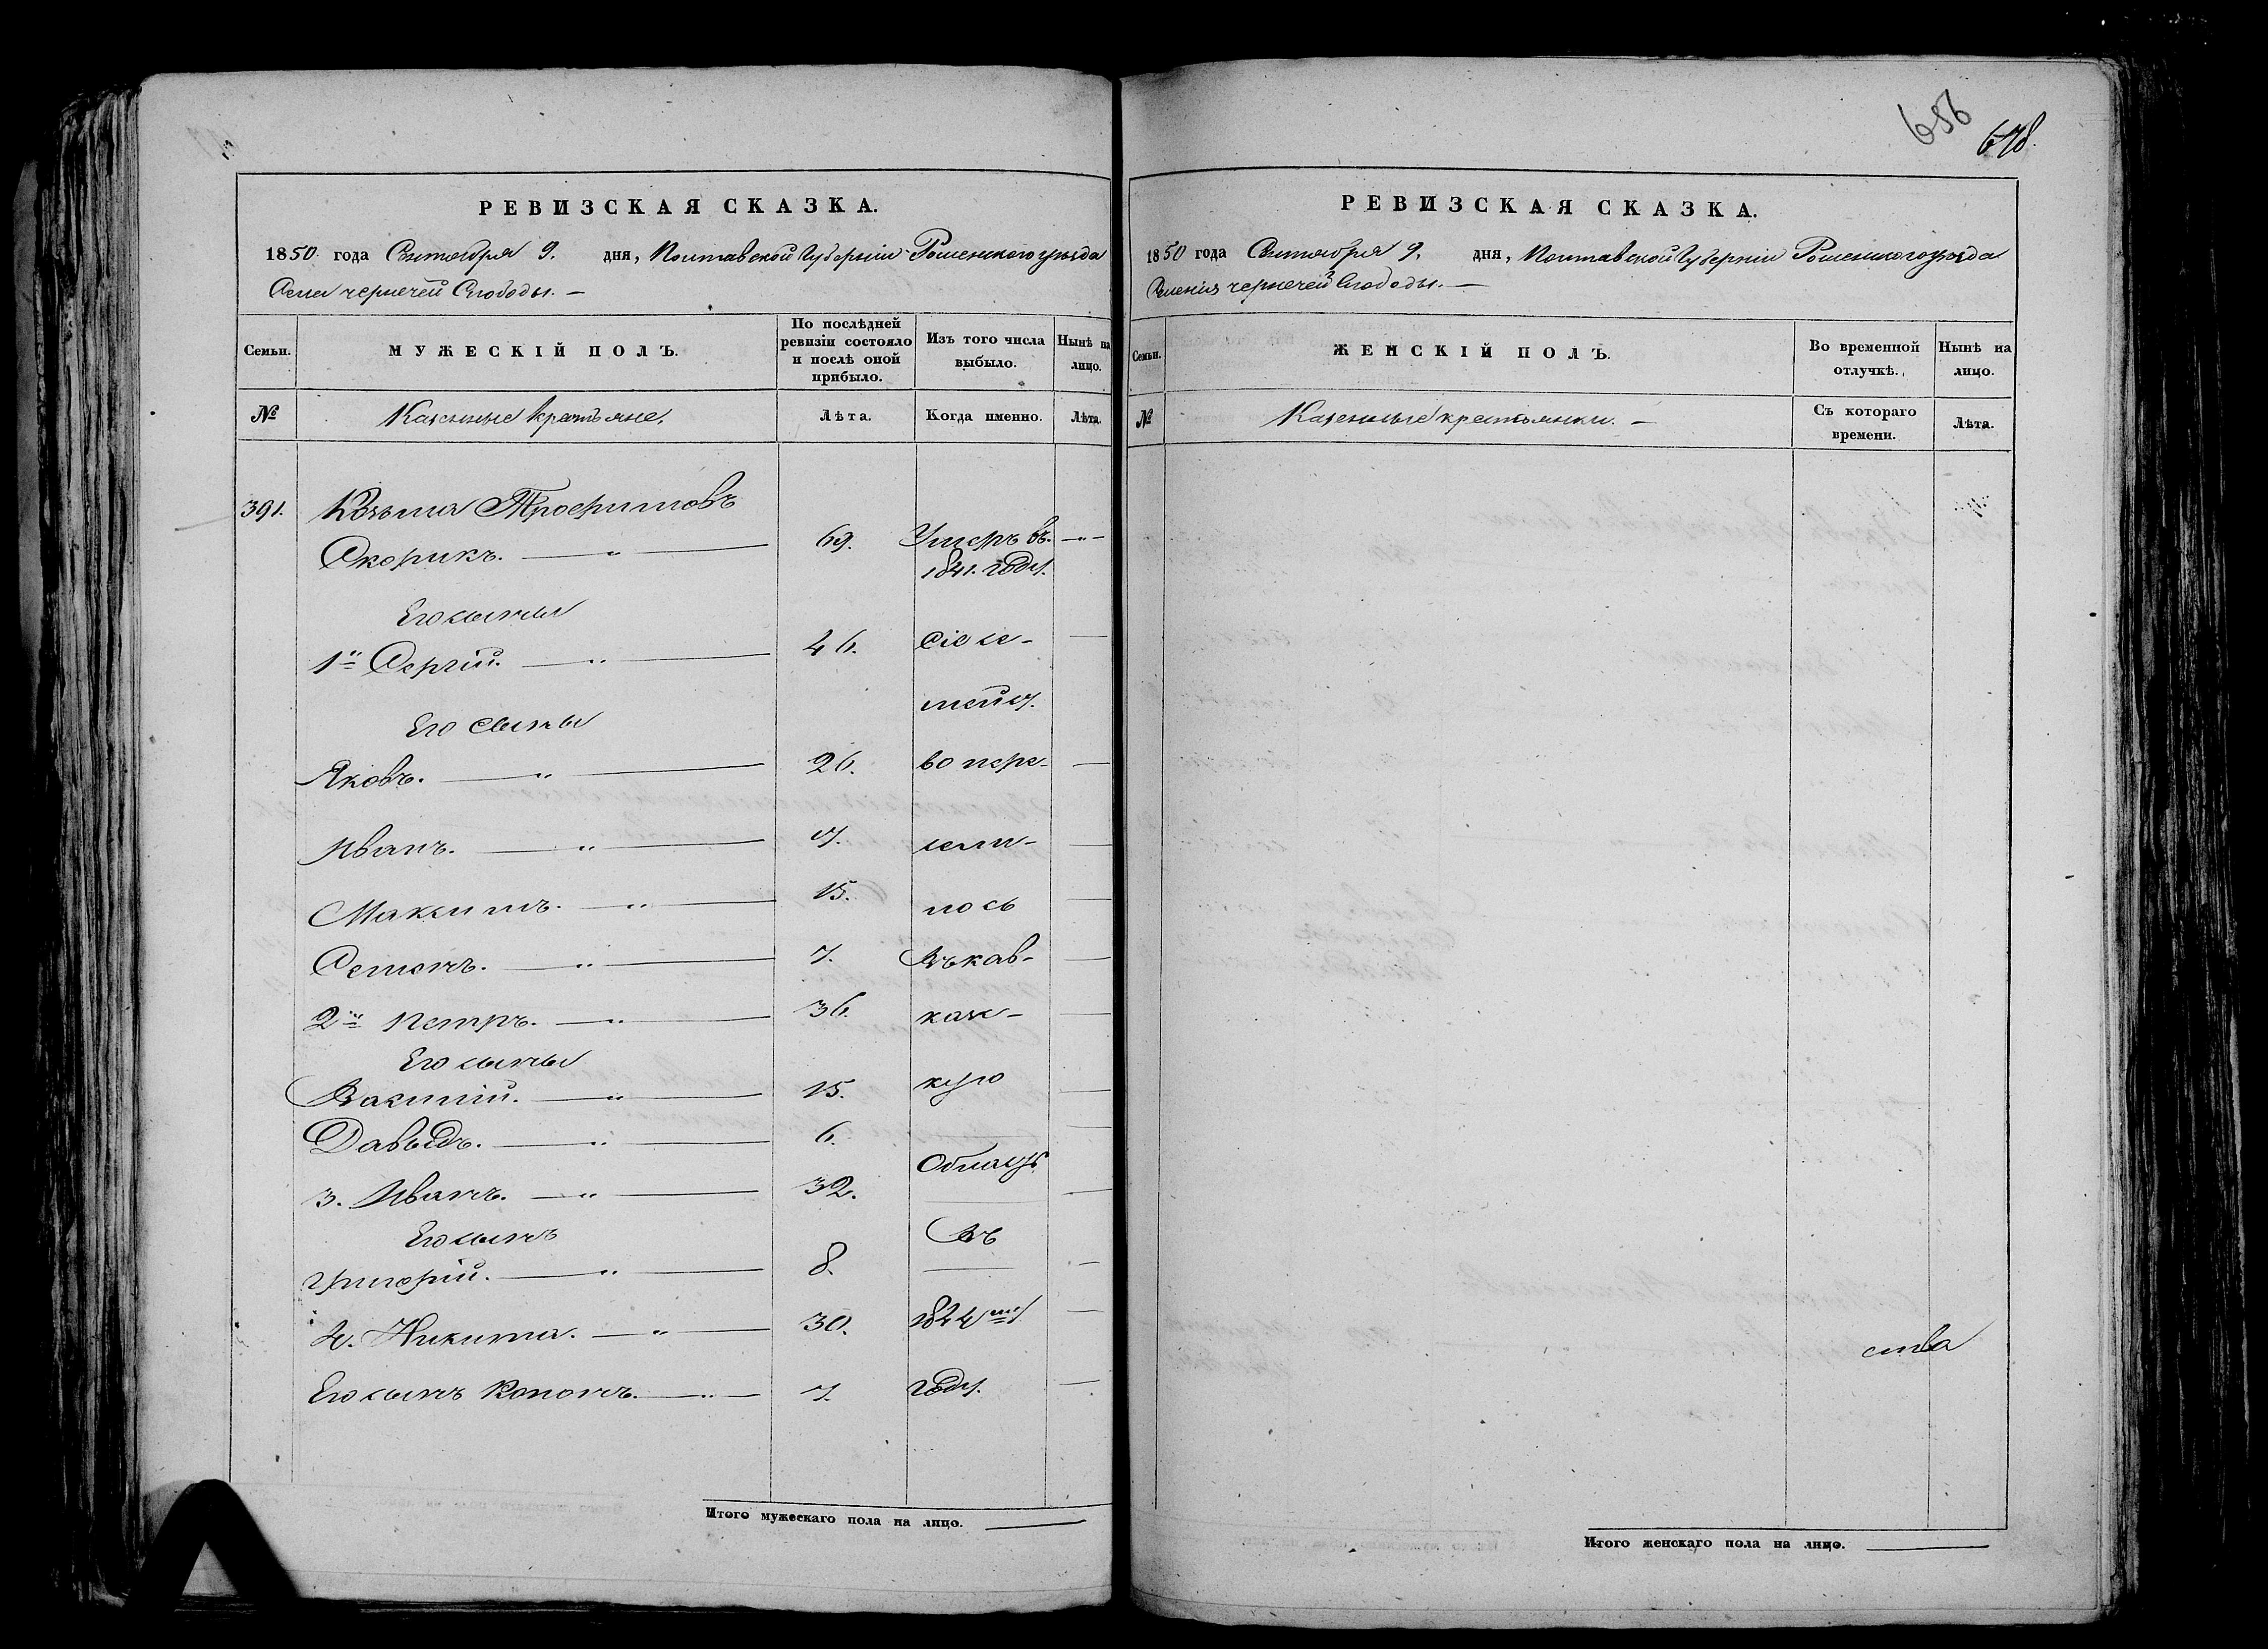 РЕВИЗСКАЯ СКАЗКА.
1850 года Сентября 9. дня, Полтавской Губерніи Роменского уѣзда
Села чернечей Слободы. —
Семьи.
МУЖЕСКІЙ ПОЛЪ.
По послѣдней
ревизіи состояло
и послѣ оной
прибыло.
Изъ того числа
выбыло.
Нынѣ на
лицо.
№
Казенные крестьяне.
Лѣта.
Когда именно.
Лѣта.
391. Козьма Трофимовъ
Скорикъ. — " — 69. Умеръ въ — " —
1841. году.
Его сыны
1й Сергій. — " — 46. Сіе се- —
мейст.
Его сыны
Яковъ. — " — 26. во пере- —
Иванъ. — " — сели- —
Максимъ. — " — 15. лось —
Семенъ. — " — 7. Въ кав- —
2й Петръ. — " — 36. каз- —
Его сыны
Василій. — " — 15. кую —
Давыдъ. — " — 6. —
Область
3. Иванъ. — " — 32. —
Его сынъ Въ
Григорій. — " — 8. —
4. Никита. — " — 30. 1844мъ —
Его сынъ Кононъ. — " — 7. году. —
Итого мужескаго пола на лицо. —
656
678.
РЕВИЗСКАЯ СКАЗКА.
1850 года Сентября 9. дня, Полтавской Губерніи Роменского уѣзда
Селенія чернечей Слободы. —
Семьи.
ЖЕНСКІЙ ПОЛЪ.
Во временной
отлучкѣ.
Нынѣ на
лицо.
№
Казенные крестьянки. —
Съ котораго
времени.
Лѣта.
ства
Итого женскаго пола на лицо. —